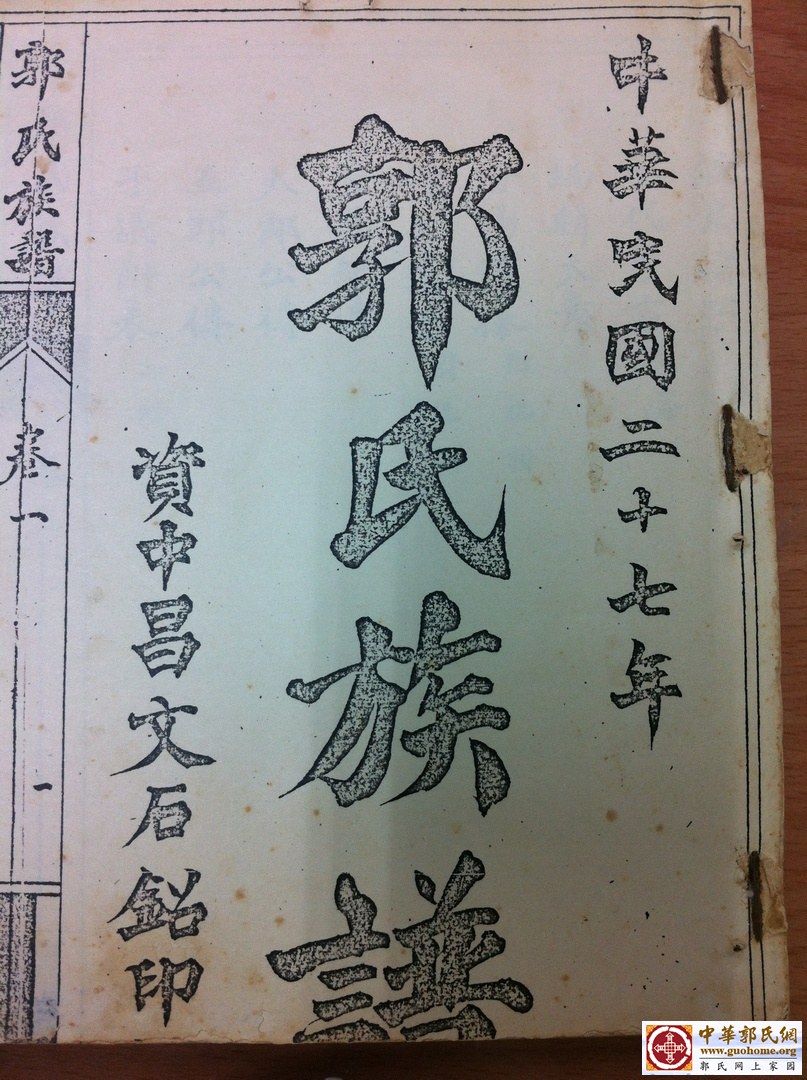 中華民國二十七年
郭氏族譜
資中昌文石鉛印
郭氏族譜
卷一
一
中華郭氏網
www.guohome.org
郭氏网上家园